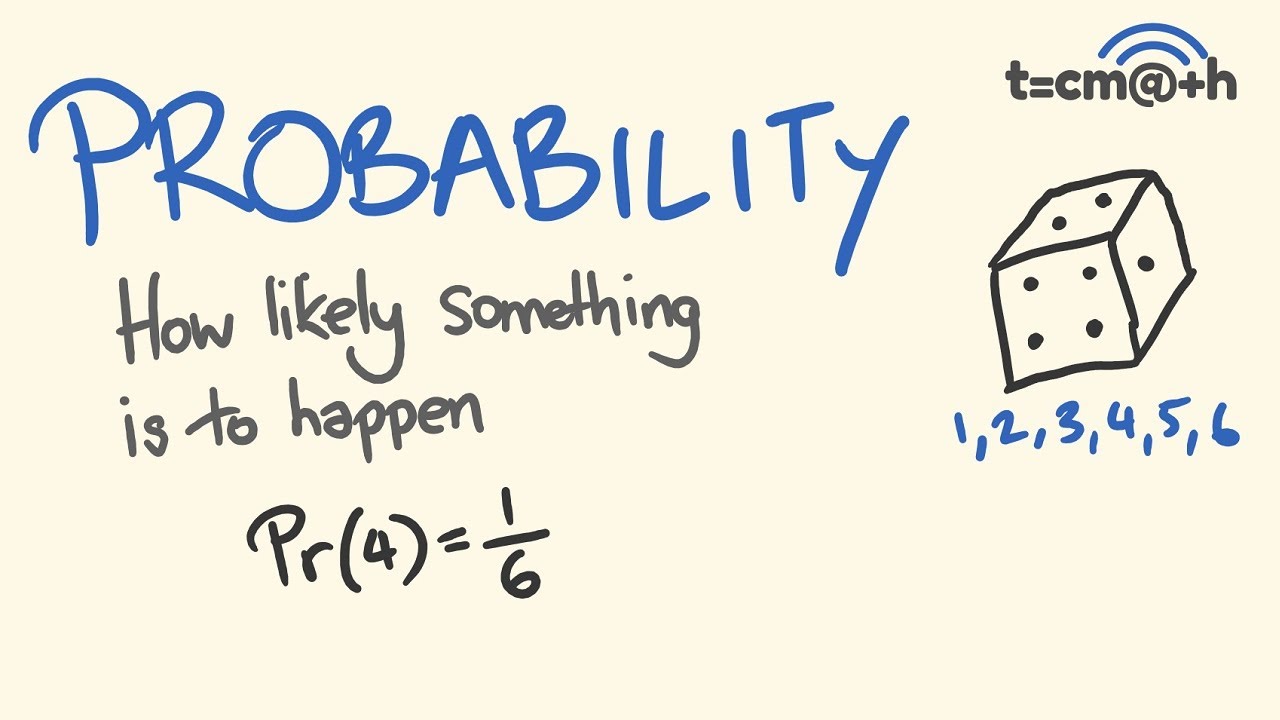 t=cm@+h
PROBABILITY
How likely something
is to happen
1,2,3,4,5,6
Pr(4)=1/6